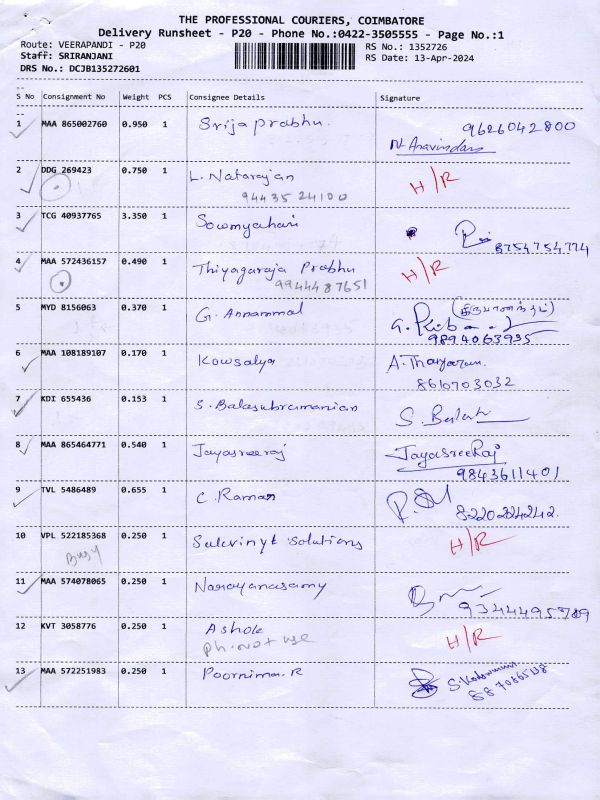 THE PROFESSIONAL COURIERS, COIMBATORE
Delivery Runsheet - P20 - Phone No.:0422-3505555 - Page No.:1
Route: VEERAPANDI - P20 RS No.: 1352726
Staff: SRIRANJANI RS Date: 13-Apr-2024
DRS No.: DCJB135272601
S No Consignment No Weight PCS Consignee Details Signature
1 MAA 865002760 0.950 1 Srija prabhu. 9626042800
N. Aravindan
2 DDG 269423 0.750 1 L. Natarajan H/R
94435 24100
3 TCG 40937765 3.350 1 Sowmyahari
8754754774
4 MAA 572436157 0.490 1 Thiyagaraja Prabhu H/R
9944487651
5 MYD 8156063 0.370 1 G. Annammal
9894063935
6 MAA 108189107 0.170 1 Kowsalya A.
8610703032
7 KDI 655436 0.153 1 S. Balasubramanian S.
8 MAA 865464771 0.540 1 Jayasreeraj JayasreeRaj
9843611401
9 TVL 5486489 0.655 1 C. Raman
8220224242.
10 VPL 522185368 0.250 1 Sulvinyt Solutions H/R
Busy
11 MAA 574078065 0.250 1 Narayanasamy
9344495789
12 KVT 3058776 0.250 1 Ashok H/R
Ph. not use
13 MAA 572251983 0.250 1 Poornima. R S.